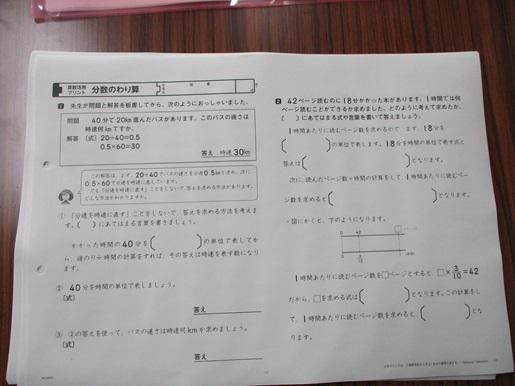 算数活用
プリント
分数のわり算
1 先生が問題と解答を板書してから、次のようにおっしゃいました。
問題 40分で20km進んだバスがあります。このバスの速さは
時速何kmですか。
解答 (式) 20÷40=0.5
0.5×60=30
答え 時速30km
この解答は、まず、20÷40でバスの速さを分速0.5kmと求め、次に
0.5×60で分速を時速に直しています。
でも「分速を時速に直す」ことをしないで、答えを求める方法があります。
どんな方法かわりますか。
① 「分速を時速に直す」ことをしないで、答えを求める方法を考えます。
( )にあてはまる言葉を書きましょう。
かかった時間の40分を( )の単位で表してか
ら、道のり÷時間の計算をすれば、その答えは時速を表す数になり
ます。
② 40分を時間の単位で表しましょう。
(式)
答え
③ ②の答えを使って、バスの速さは時速何kmか求めましょう。
(式)
答え
2 42ページ読むのに18分かかった本があります。1時間では何
ページ読むことができるか求めました。どのように考えて求めたか、
( )にあてはまる式や言葉を書いて答えましょう。
1時間あたりに読むページ数を求めるので、まず、18分を
( )の単位で表します。18分を時間の単位で表す式と
答えは( )となります。
次に、読んだページ数÷時間の計算をして、1時間あたりに読むペー
ジ数を求めると( )となります。
・図にかくと、下のようになります。
0 42 □
0 3/10 1
1時間あたりに読むページ数を□ページとすると、□×3/10=42
だから、□を求める式は( )となります。この計算をし
て、1時間あたりに読むページ数を求めると、( )
となります。